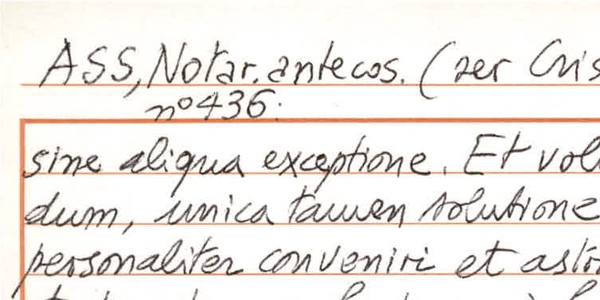 ASS, Notar. antecos. (ser Cris
n° 436.
sine aliqua exceptione. Et vol
dum, unica tamen solutione
personaliter conveniri et